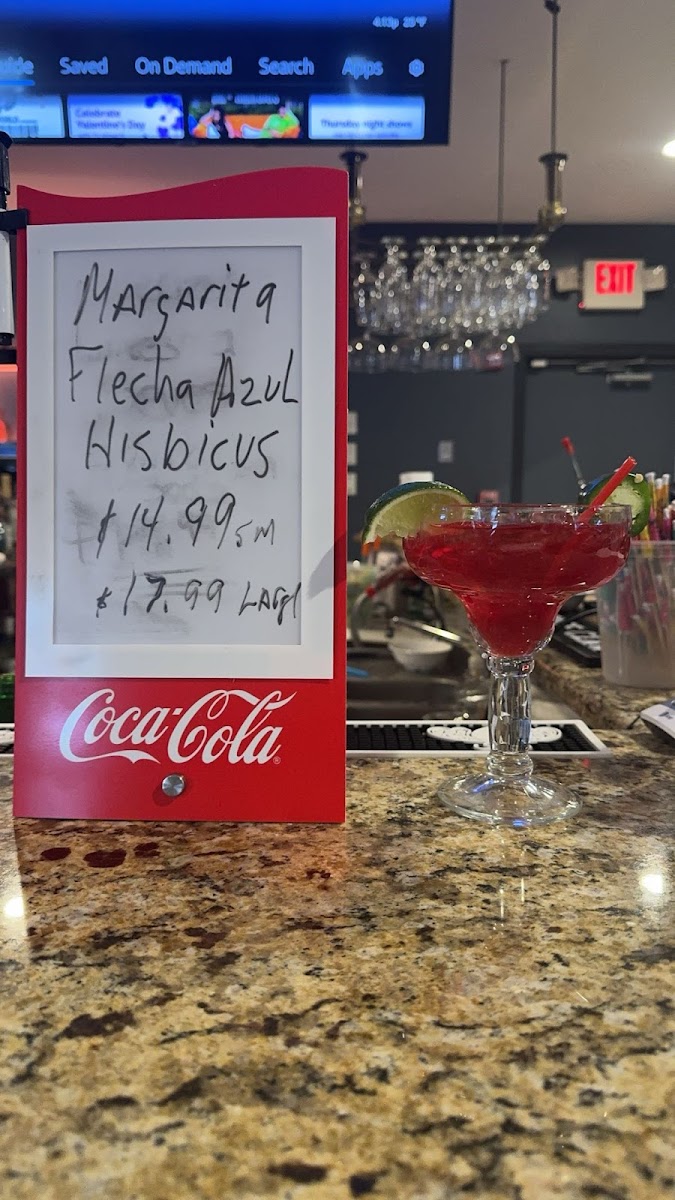 4:13p 25°F
Saved On Demand Search Apps
Celebrate
Valentine's Day
Thursday night shows
EXIT
MArgArita
Flecha AzuL
HIsbicus
$14.99 SM
$17.99 LArgl
Coca-Cola